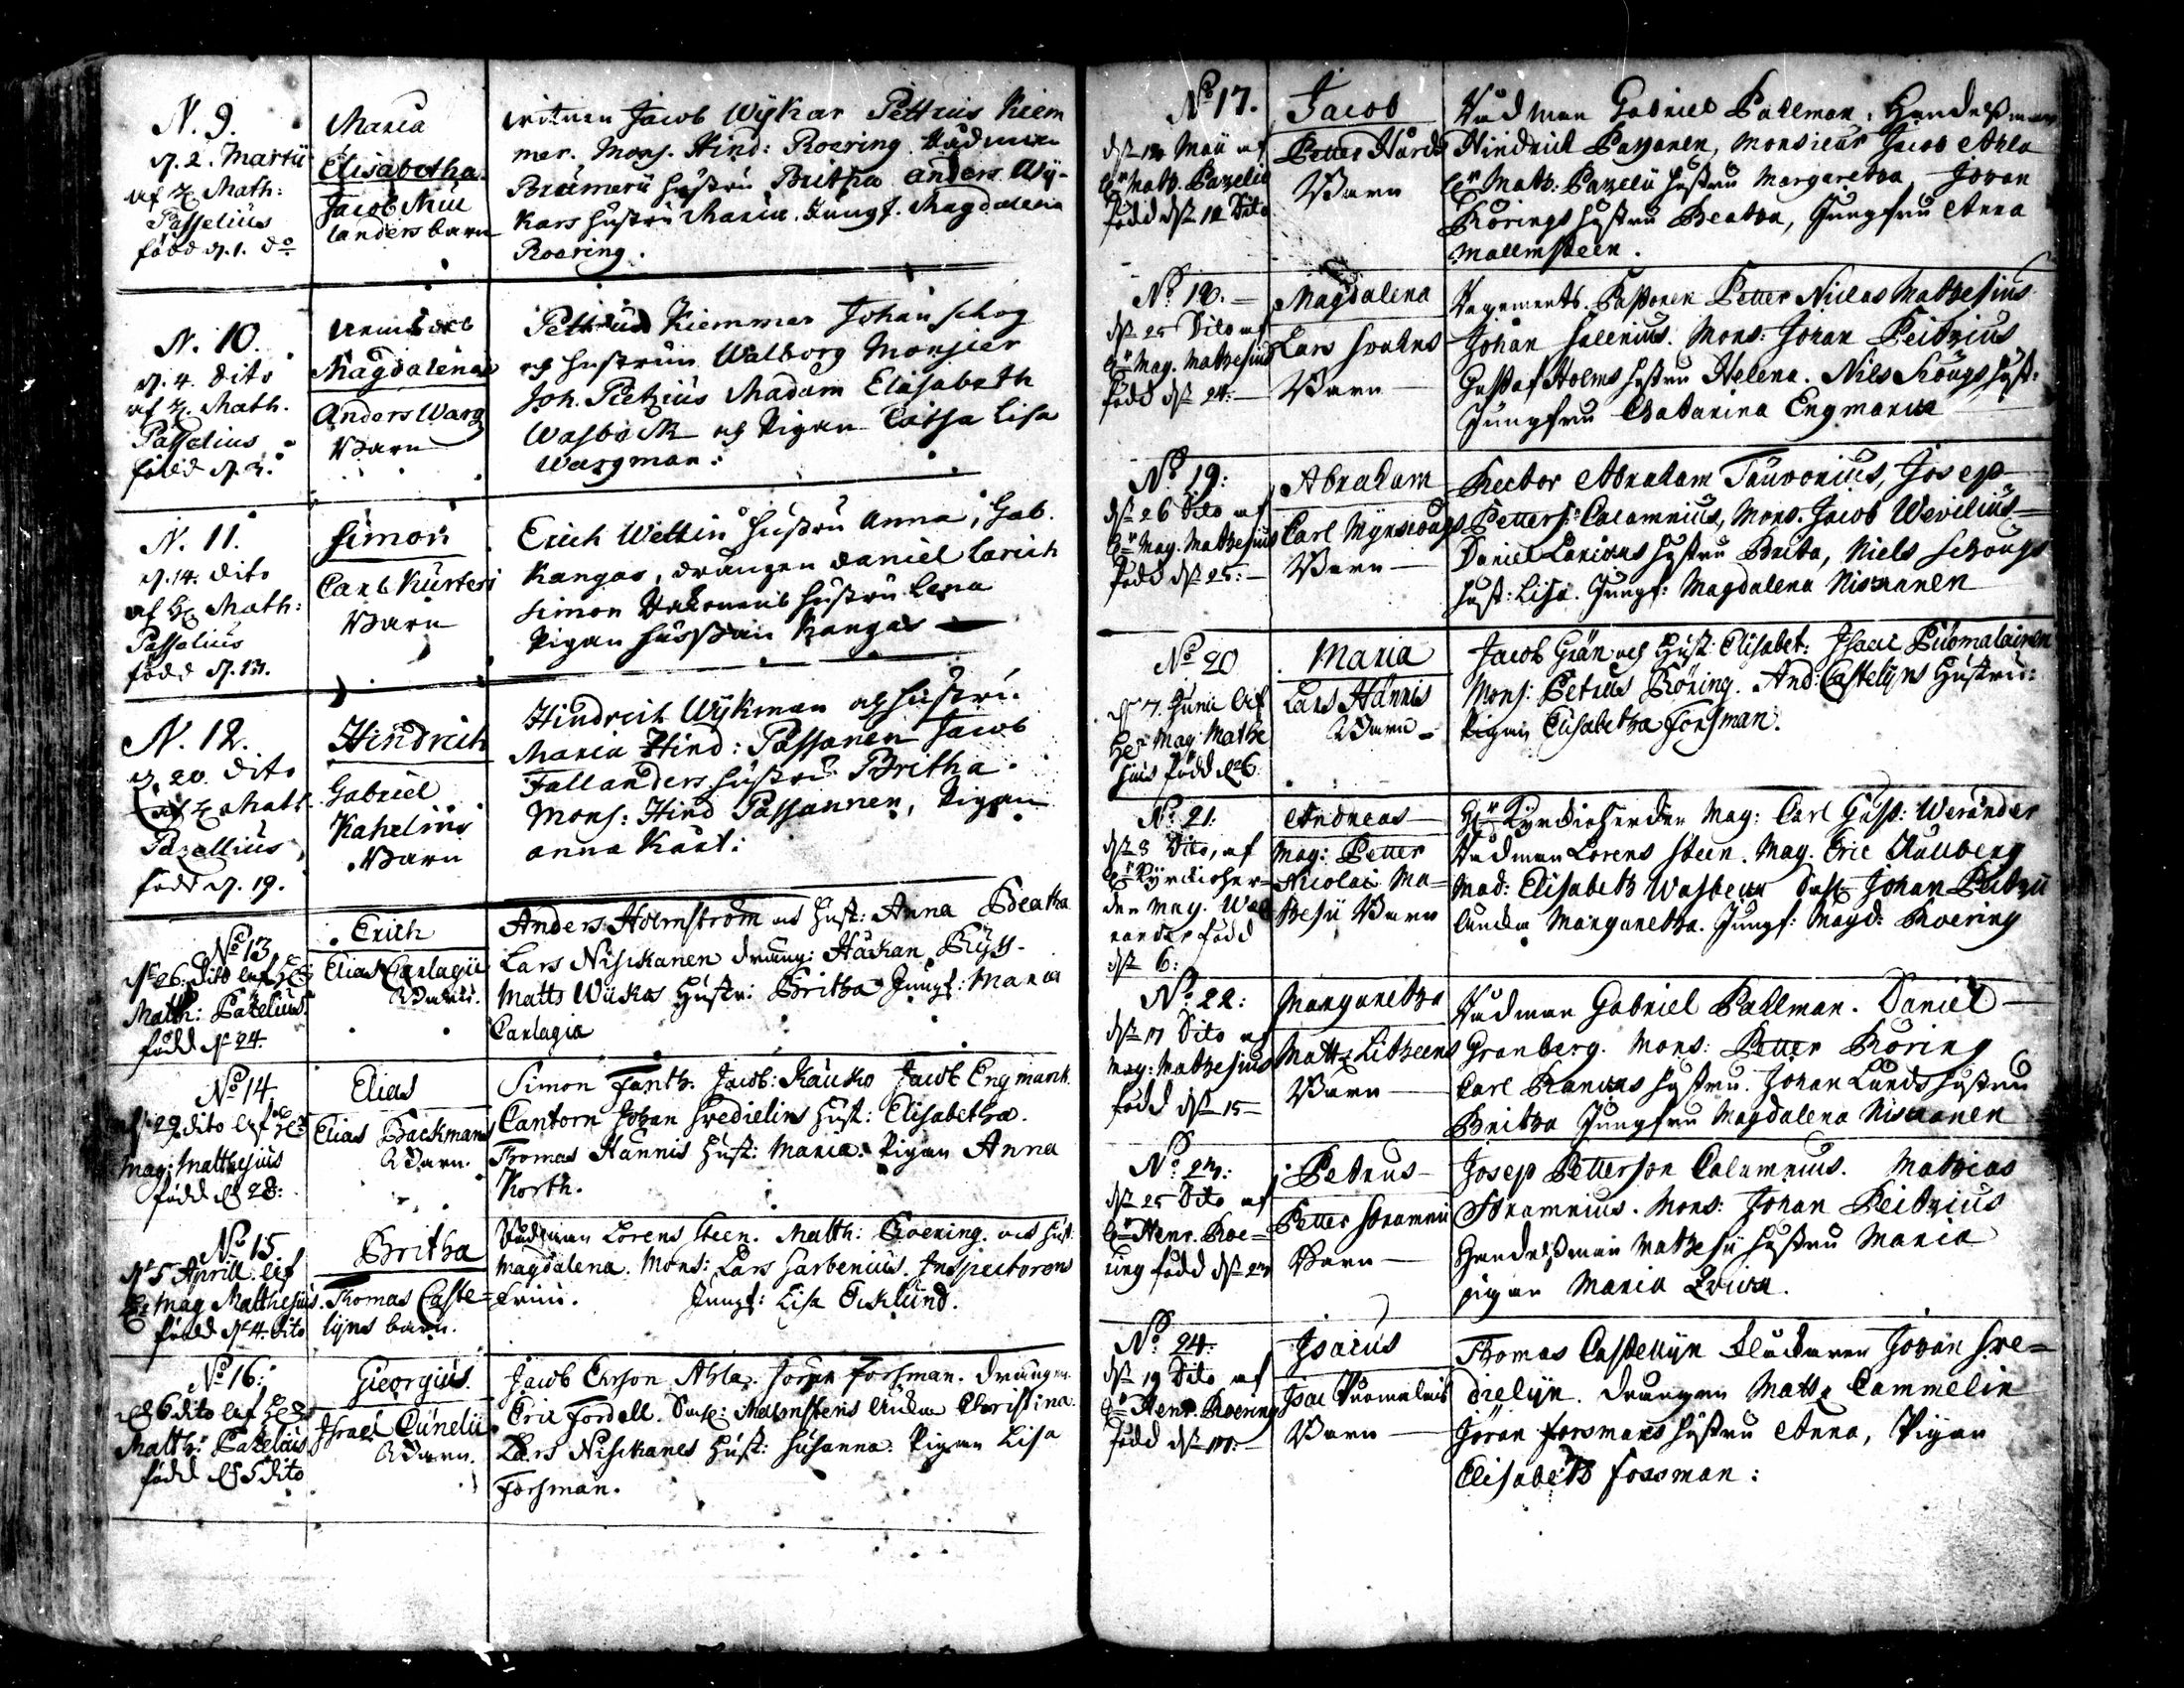 N. 9.
d. 2. Martii
af H. Math:
Passelius
född d. 1. do
Maria
Elisabetha
Jacob Niu
landers barn
Jacob Wijkar Pettrus Kiem
mer. Mons. Hind: Roering Rådman
Bræmers hustru Britha Anders Wij-
kars hustru Maria. Jungf. Magdalena
Roering.
N. 10.
d. 4. dito
af H. Math.
Passelius
född d. 3.
Magdalena
Anders Warg
Barn
Pettrus Kiemmer Johan Skog
och hustrun Walborg Monsier
Joh. Peitzius Madam Elisabeth
Wasbeck och Pigan Caisa Lisa
Wargman:
N. 11.
d. 14. dito
af H. Math:
Passelius
född d. 13.
Simon
Carl Kurteri
Barn
Erich Wettin hustru Anna, Gab.
Kangas, drängen Daniel Larich
Simon hustru Lena
Pigan Kangas
N. 12.
d. 20. dito
af H. Math.
Pazellius
född d. 19.
Hindrich
Gabriel
Kahelins
Barn
Hindrich Wijkman och hustru
Maria Hind: Passanen Jacob
Fallanders hustru Britha.
Mons: Hind Passannen, Pigan
Anna Kart:
No 13
d. 26: dito af Hr
Math: Pazelius
född d. 24.
Erich
Elias Carlagii
Barn.
Anders Holmström ock Hust: Anna Beatha
Lars Nisckanen dräng: Håckan Rijss.
Matts Wiikas Hustr: Britha Jungf: Maria
Carlagia
No 14
d. 29 dito af Hr
Mag: Matthesius
född d. 28:
Elias
Elias Backmans
Barn.
Simon Fanth. Jacob: Kauko Jacob Engmank.
Cantorn Johan Fredielins Hust: Elisabetha.
Thomas Hannis Hust: Maria. Pigan Anna
Korth.
No 15.
d. 5 Aprill af
Hr Mag Matthesius.
född d. 4. dito
Britha
Thomas Caste=
lijns barn.
Rådman Lorens Steen. Matth: Roering. ock hust:
Magdalena. Mons: Lars Sarbenius. Inspectorens
Fruu. Jungf: Lisa Eeklund.
No 16:
d. 6 dito af Hr
Matth: Pazelius
född d. 5 dito
Georgius.
Israel Cunelii
Barn.
Jacob Ersson Ahla. Jöran Forsman. Drängen
Eric Fordell. Malmstens Enka Christina.
Lars Nisckanes Hust: Susanna. Pigan Lisa
Forsman.
No 17.
Maii af
Hr Math. Pazelio
född d. 12 Dito
Jacob
Petter Hårds
Barn
Rådman Gabriel Pallman. Handelsman
Hindrich Pazanen, Monsieur Jacob Ahla
Hr Math: Pazelii hustru Margaretha Johan
Rörings hustru Beatha, Jungfru Anna
Mallmsteen.
No 18.
d. 25 Dito af
Hr Mag. Mathesius
född d. 24.
Magdalena
Lars Frakns
Barn
Regements Pastoren Petter Niclas Mathesius
Johan Salenius. Mons: Johan Peitzius
Gustaf Holms hustru Helena. Nils Skougs hust:
Jungfru Chatarina Engmarck
No 19:
d. 26 Dito af
Hr Mag. Mathesius
född d. 25:
Abraham
Carl Mijnskougs
Barn
Rector Abraham Fauvonius, Josep
Petters: Calamnius, Mons. Jacob Wevilius
Daniel Larickas hustru Brita, Niels Skougs
hust: Lisa. Jungf: Magdalena Niskanen
No 20
d. 7. Junii af
Hr Mag: Mathe
sius född d. 6
Maria
Lars Hannis
Barn
Jacob Grän och Hust: Elisabet: Isaac Puomalainen
Mons: Petrus Röring. And: Castelijns Hustru:
Pigan Elisabetha Forsman.
No 21.
d. 8 Dito, af
Hr Kyrckioher=
den Mag. Wer
ander född
d. 6:
Andreas
Mag: Petter
Nicolai Ma=
thesii Barn
Hr Kyrckioherden Mag: Carl Gust: Werander
Rådman Lorens Steen. Mag. Eric Aulberg
Mad: Elisabeth Wasbeck Johan Peitzii
Enckia Margaretha. Jungf: Magd: Roering
No 22:
d. 17 Dito af
Mag: Mathesius
född d. 15
Margaretha
Matts Litzeens
Barn
Rådman Gabriel Pallman. Daniel
Granberg. Mons: Petter Röring
Carl Ranckas hustru. Johan Lunds hustru
Britha Jungfru Magdalena Niskanen
No 23:
d. 25 Dito af
Hr Henr. Roe=
ring född d. 23
Petrus
Petter Stramnii
Barn
Josep Petterson Calamnius. Mathias
Stramnius. Mons: Johan Peitzius
Handelsman Mathesii hustru Maria
pigan Maria
No 24.
d. 19 Dito af
Hr Henr. Roering
född d. 17:
Isacus
Isac Puomalais
Barn
Thomas Castellijn Klåckaren Johan Fre=
dielijn. drängen Matts Cammelin
Jöran Forsmans hustru Anna, Pigan
Elisabeth Fossman: